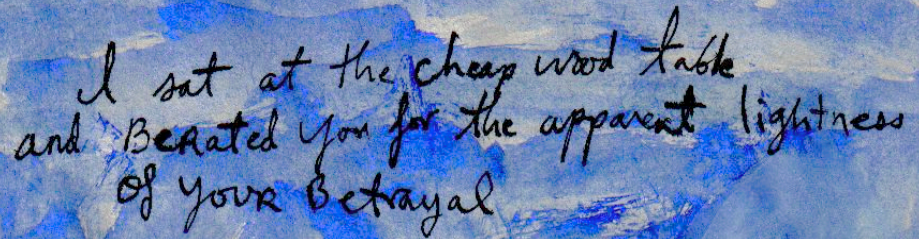 I sat at the cheap wood table
and Berated you for the apparent lightness
Of your Betrayal